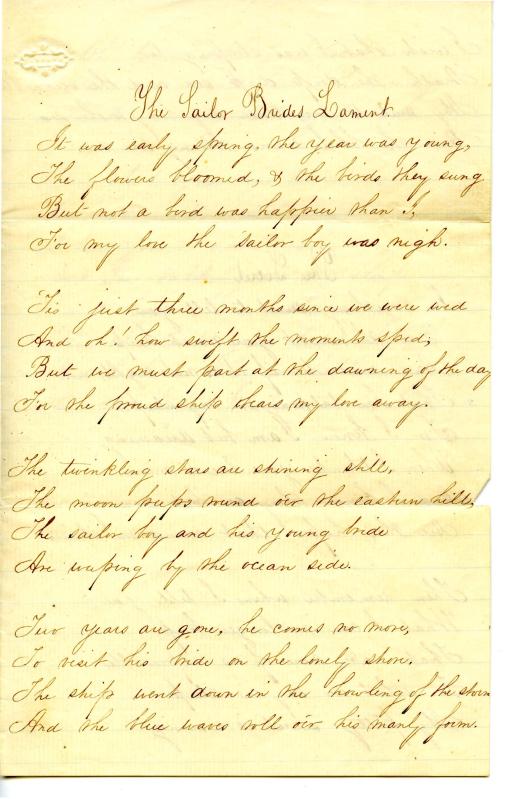 The Sailor Brides Lament.
It was early spring, the year was young,
The flowers bloomed, & the birds they sung
But not a bird was happier than I,
For my love the sailor boy was nigh.
Tis just three months since we were wed
And oh! how swift the moments sped;
But we must part at the dawning of the day
For the proud ship bears my love away.
The twinkling stars are shining still,
The moon peeps round o'er the eastern hill,
The sailor boy and his young bride
Are weeping by the ocean side.
Two years are gone, he comes no more,
To visit his bride on the lonely shore.
The ship went down in the howling of the storm
And the blue waves roll o'er his manly form.